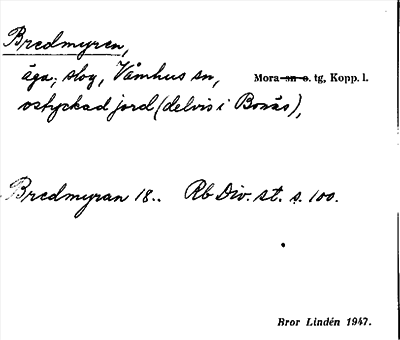 Bredmyren,
äga; skog, Våmhus sn, Mora sn o. tg, Kopp. l.
ostyckad jord (delvis i Bonäs),
Bredmyran 18.. Rb Div. st. s. 100.
Bror Lindén 1947.